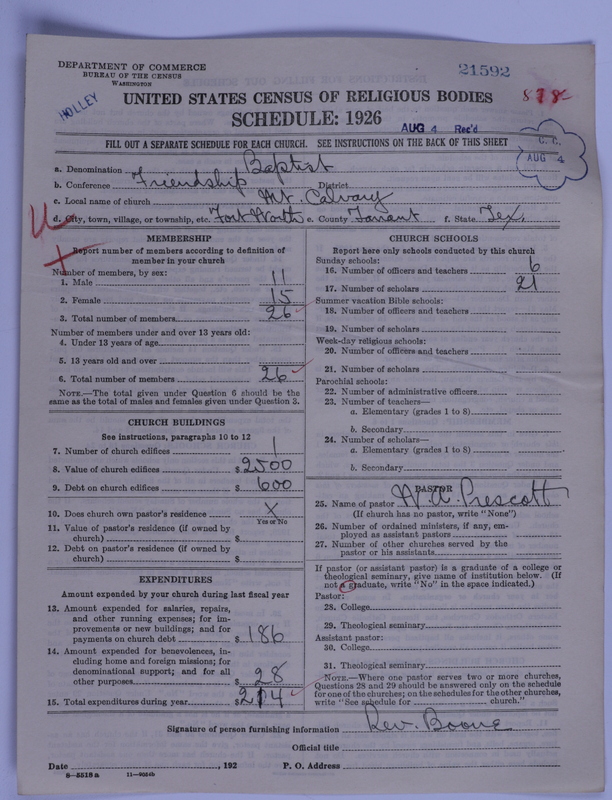 DEPARTMENT OF COMMERCE
BUREAU OF THE CENSUS
WASHINGTON
21592
HOLLEY
UNITED STATES CENSUS OF RELIGIOUS BODIES
SCHEDULE: 1926
AUG 4 Rec'd
FILL OUT A SEPARATE SCHEDULE FOR EACH CHURCH. SEE INSTRUCTIONS ON THE BACK OF THIS SHEET
C. C.
AUG 4
a. Denomination Baptist
b. Conference Friendship District
c. Local name of church Mt. Calvary
d. City, town, village, or township, etc. Fort Worth e. County Tarrant f. State Tex.
MEMBERSHIP
Report number of members according to definition of
member in your church
Number of members, by sex:
1. Male 11
2. Female 15
3. Total number of members 26
Number of members under and over 13 years old:
4. Under 13 years of age
5. 13 years old and over
6. Total number of members 26
NOTE.—The total given under Question 6 should be the
same as the total of males and females given under Question 3.
CHURCH BUILDINGS
See instructions, paragraphs 10 to 12
7. Number of church edifices 1
8. Value of church edifices $2500
9. Debt on church edifices $600
10. Does church own pastor's residence X
Yes or No
11. Value of pastor's residence (if owned by
church) $
12. Debt on pastor's residence (if owned by
church) $
EXPENDITURES
Amount expended by your church during last fiscal year
13. Amount expended for salaries, repairs,
and other running expenses; for im-
provements or new buildings; and for
payments on church debt $186
14. Amount expended for benevolences, in-
cluding home and foreign missions; for
denominational support; and for all
other purposes $28
15. Total expenditures during year $214
CHURCH SCHOOLS
Report here only schools conducted by this church
Sunday schools:
16. Number of officers and teachers 6
17. Number of scholars 21
Summer vacation Bible schools:
18. Number of officers and teachers
19. Number of scholars
Week-day religious schools:
20. Number of officers and teachers
21. Number of scholars
Parochial schools:
22. Number of administrative officers
23. Number of teachers—
a. Elementary (grades 1 to 8)
b. Secondary
24. Number of scholars—
a. Elementary (grades 1 to 8)
b. Secondary
PASTOR
25. Name of pastor W. A. Prescott
(If church has no pastor, write "None")
26. Number of ordained ministers, if any, em-
ployed as assistant pastors
27. Number of other churches served by the
pastor or his assistants
If pastor (or assistant pastor) is a graduate of a college or
theological seminary, give name of institution below. (If
not a graduate, write "No" in the space indicated.)
Pastor:
28. College
29. Theological seminary
Assistant pastor:
30. College
31. Theological seminary
NOTE.—Where one pastor serves two or more churches,
Questions 28 and 29 should be answered only on the schedule
for one of the churches; on the schedules for the other churches,
write "See schedule for church."
Signature of person furnishing information Rev. Boone
Official title
Date , 192 P. O. Address
8-5518a 11-9054b